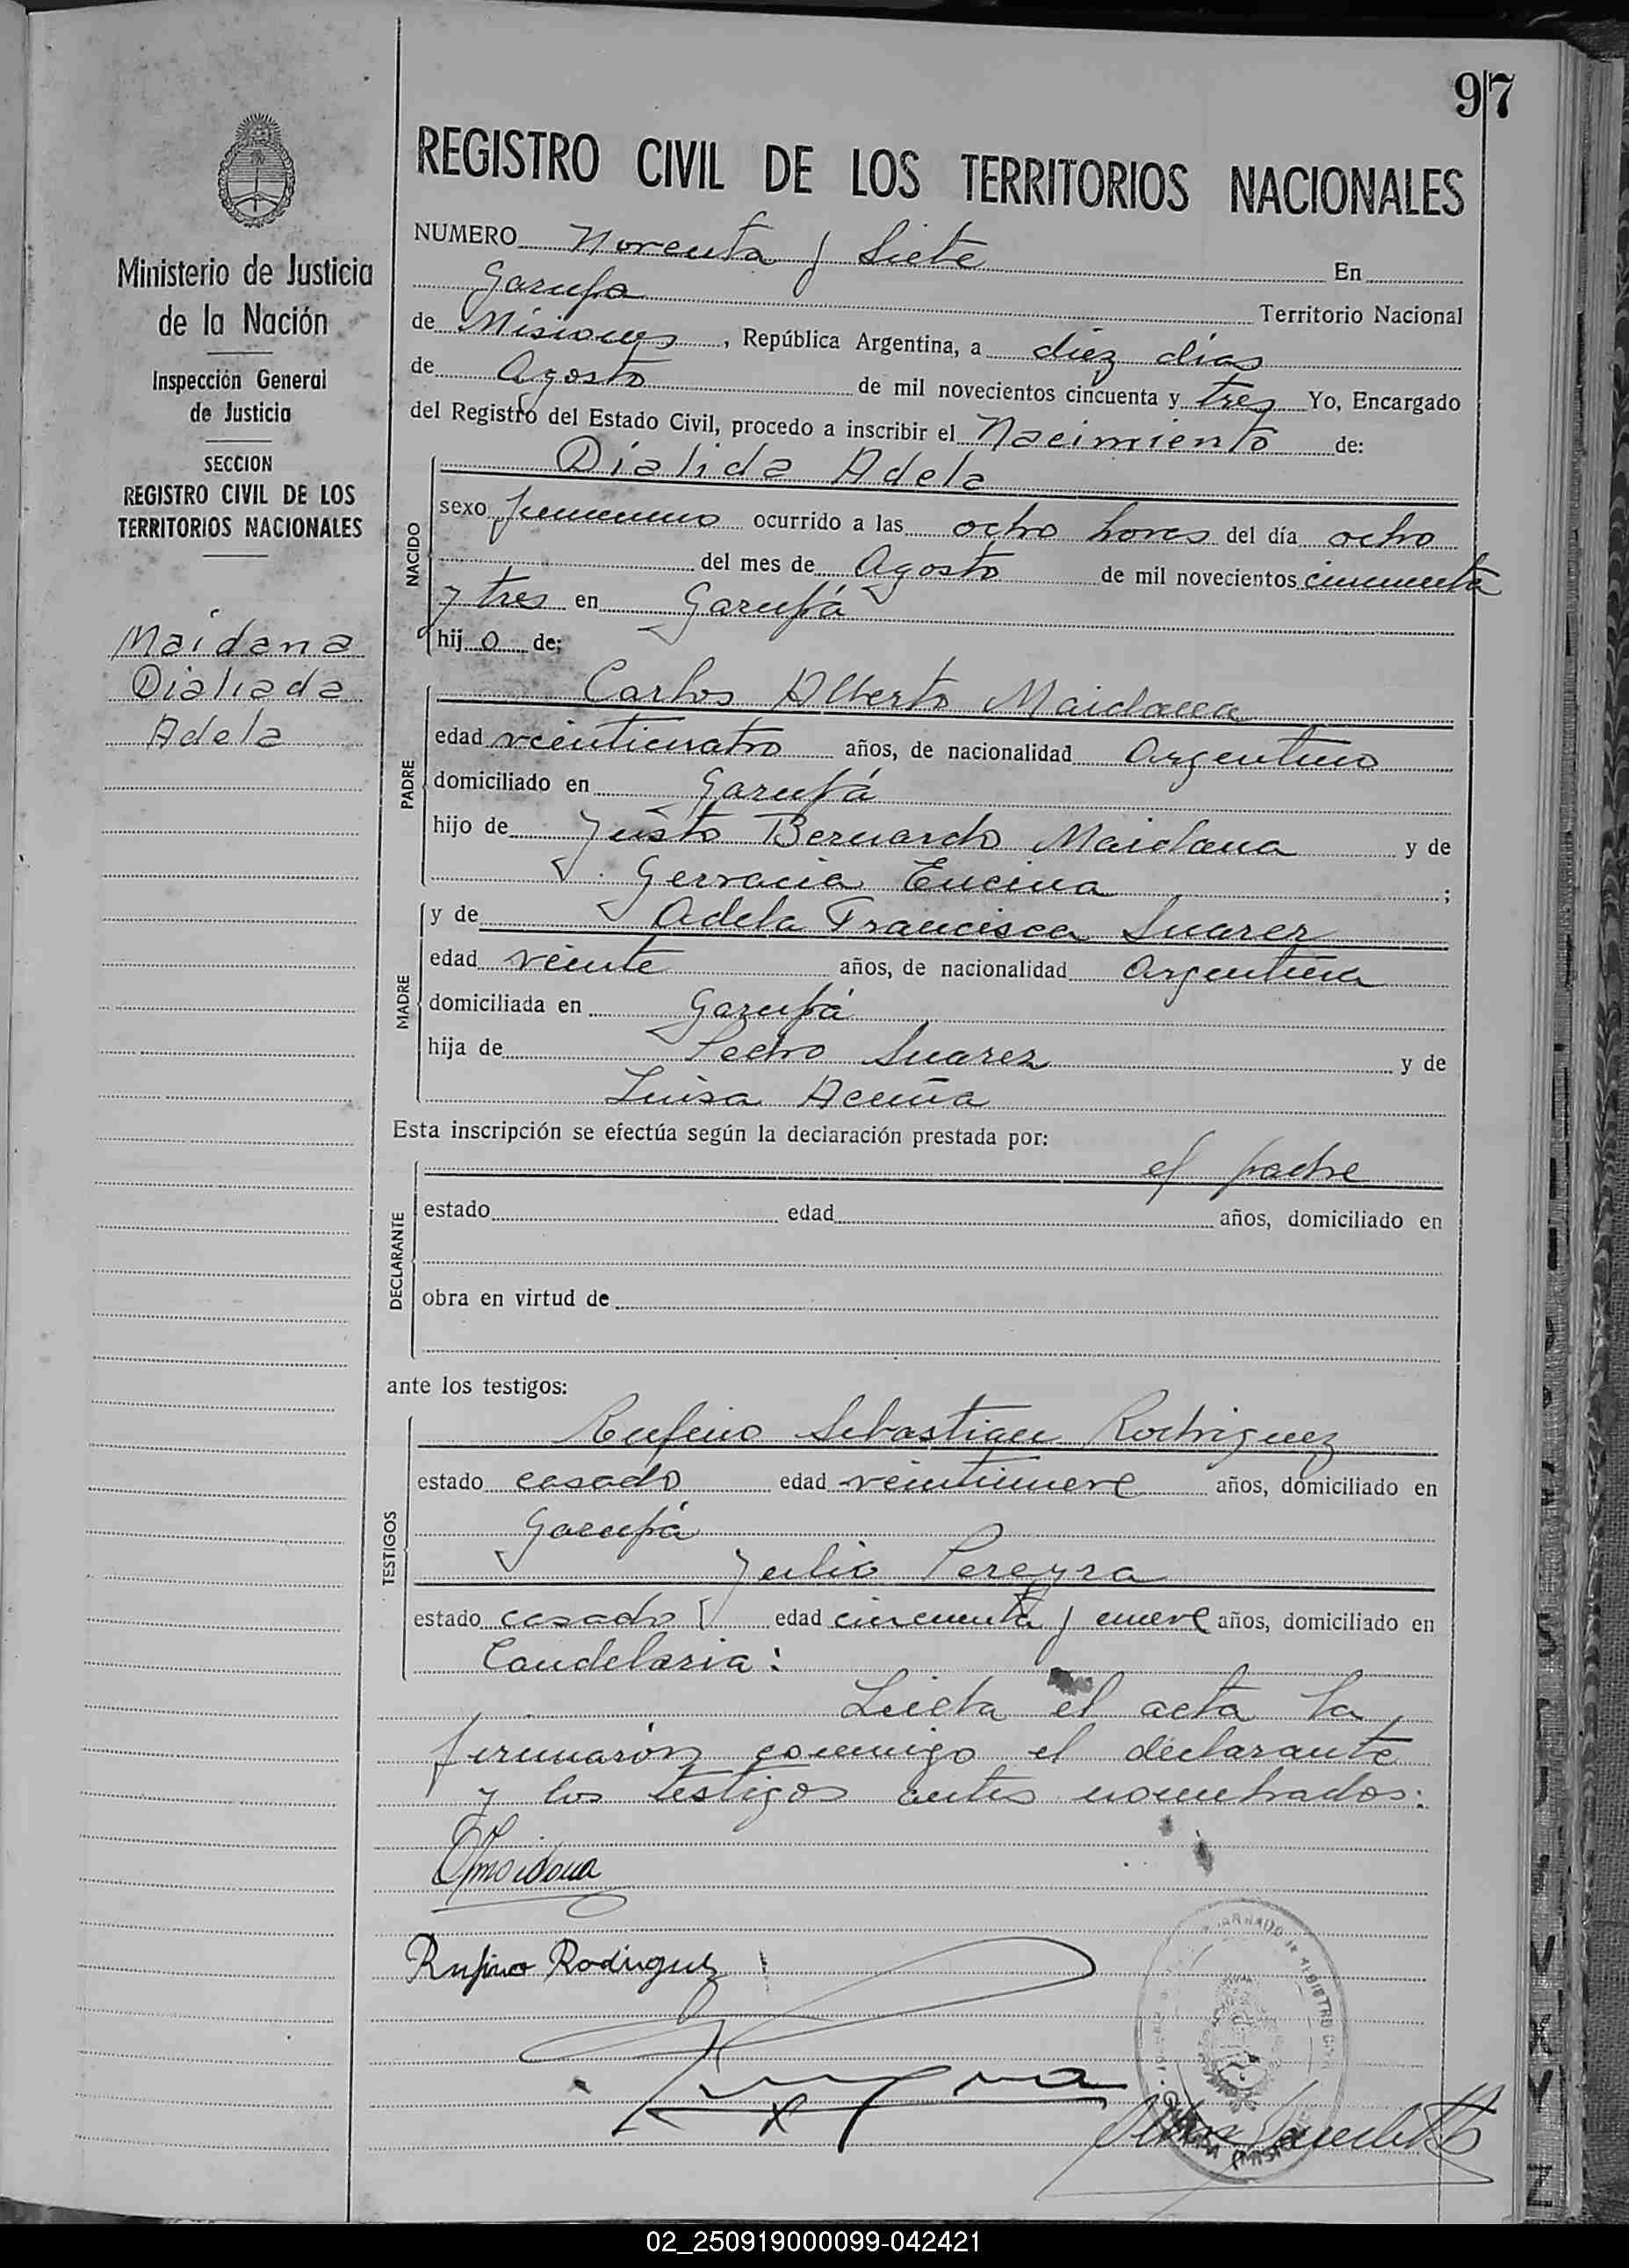 97
REGISTRO CIVIL DE LOS TERRITORIOS NACIONALES
Ministerio de Justicia
de la Nación
Inspección General
de Justicia
SECCION
REGISTRO CIVIL DE LOS
TERRITORIOS NACIONALES
Maidana
Dialiada
Adela
NUMERO Noventa y Siete En
Garupa Territorio Nacional
de Misiones, República Argentina, a diez días
de Agosto de mil novecientos cincuenta y tres Yo, Encargado
del Registro del Estado Civil, procedo a inscribir el Nacimiento de:
NACIDO
Dialida Adela
sexo femenino ocurrido a las ocho horas del día ocho
del mes de Agosto de mil novecientos cincuenta
y tres en Garupá
hijo de:
PADRE
Carlos Alberto Maidana
edad veinticuatro años, de nacionalidad Argentino
domiciliado en Garupá
hijo de Justo Bernardo Maidana y de
Gervacia Encina ;
MADRE
y de Adela Francisca Suarez
edad veinte años, de nacionalidad Argentina
domiciliada en Garupá
hija de Pedro Suarez y de
Luisa Acuña
Esta inscripción se efectúa según la declaración prestada por:
DECLARANTE
el padre
estado edad años, domiciliado en
obra en virtud de
ante los testigos:
TESTIGOS
Rufino Sebastian Rodriguez
estado casado edad veintinueve años, domiciliado en
Garupá
Julio Pereyra
estado casado edad cincuenta y nueve años, domiciliado en
Candelaria:
Leida el acta la
firmarón conmigo el declarante
y los testigos antes nombrados:
Maidana
Rufino Rodriguez
02_250919000099-042421